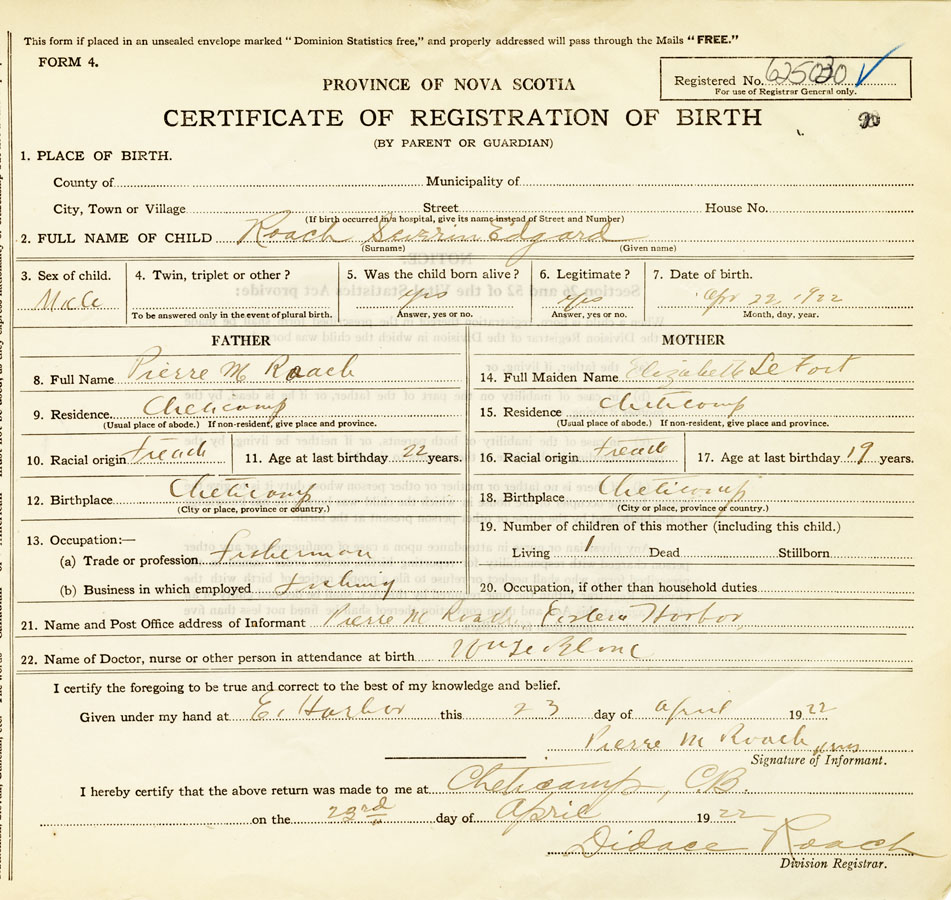 This form if placed in an unsealed envelope marked "Dominion Statistics free," and properly addressed will pass through the Mails "FREE."
FORM 4.
Registered No. 625030
For use of Registrar General only.
PROVINCE OF NOVA SCOTIA
CERTIFICATE OF REGISTRATION OF BIRTH
(BY PARENT OR GUARDIAN)
1. PLACE OF BIRTH.
County of Municipality of
City, Town or Village Street House No.
(If birth occurred in a hospital, give its name instead of Street and Number)
2. FULL NAME OF CHILD Roach Severin Edgard
(Surname) (Given name)
3. Sex of child. 4. Twin, triplet or other? 5. Was the child born alive? 6. Legitimate? 7. Date of birth.
Male yes yes Apr 22, 1922
To be answered only in the event of plural birth. Answer, yes or no. Answer, yes or no. Month, day, year.
FATHER MOTHER
8. Full Name Pierre M Roach 14. Full Maiden Name Elizabeth LeFort
9. Residence. Cheticamp 15. Residence Cheticamp
(Usual place of abode.) If non-resident, give place and province. (Usual place of abode.) If non-resident, give place and province.
10. Racial origin French 11. Age at last birthday 22 years. 16. Racial origin French 17. Age at last birthday 19 years.
12. Birthplace Cheticamp 18. Birthplace Cheticamp
(City or place, province or country.) (City or place, province or country.)
13. Occupation:— 19. Number of children of this mother (including this child.)
(a) Trade or profession Fisherman Living 1 Dead Stillborn
(b) Business in which employed Fishing 20. Occupation, if other than household duties
21. Name and Post Office address of Informant Pierre M Roach, Eastern Harbor,
22. Name of Doctor, nurse or other person in attendance at birth Wm LeBlanc
I certify the foregoing to be true and correct to the best of my knowledge and belief.
Given under my hand at E. Harbor this 23 day of April 1922
Pierre M Roach
Signature of Informant.
I hereby certify that the above return was made to me at Cheticamp, C.B.
on the 23rd day of April 1922
Didace Roach
Division Registrar.